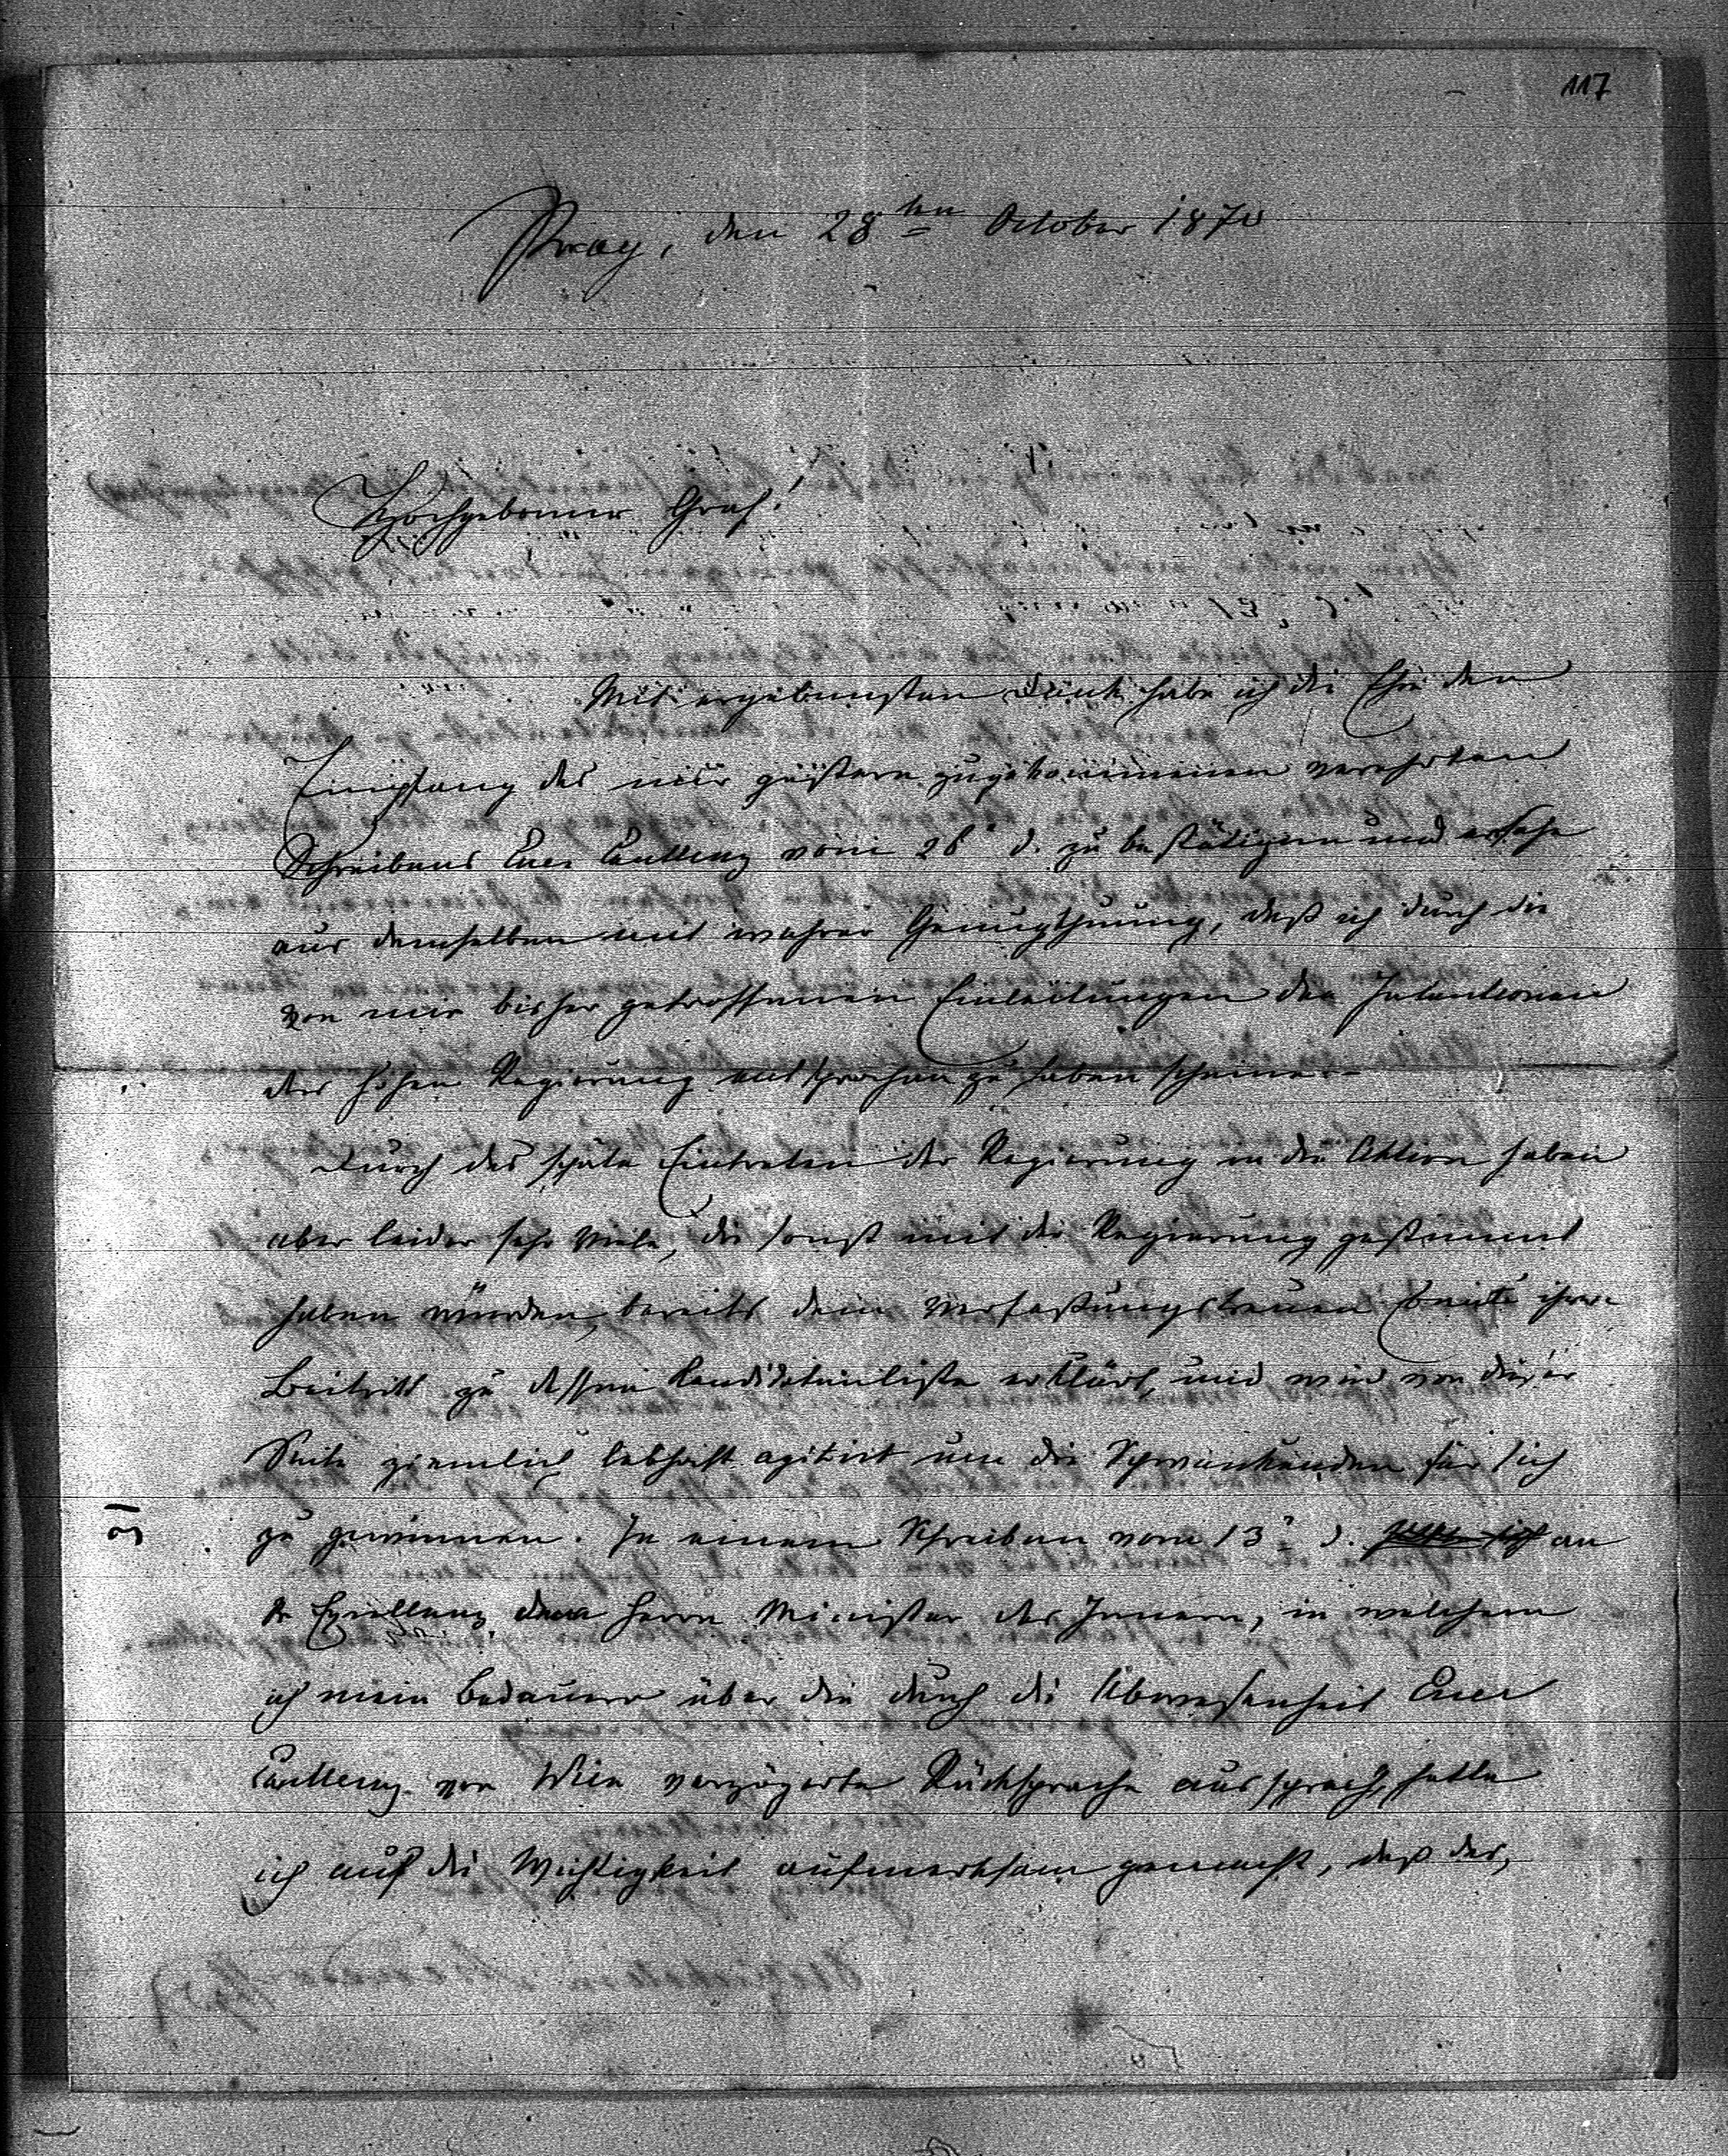 117
Prag, den 28ten October 1870
Hochgeborener Graf!
Mit ergebensten Dank habe ich die Ehre den
Empfang des mir gestern zugekommenen verehrten
Schreibens Euer Excellenz vom 26 d. zu bestätigen und ersehe
aus demselben mit wahrer Genugthuung, daß ich durch die
von mir bisher getroffenen Einleitungen den Intentionen
der hohen Regierung entsprochen zu haben scheine.
Durch das späte Eintreten der Regierung in die Aktion haben
aber leider sehr Viele, die sonst mit der Regierung gestimmt
haben würden, bereits dem verfaßungstreuen Comité ihren
Beitritt zu dessen Kandidatenliste erklärt, und wird von dieser
Seite ziemlich lebhaft agitirt um die Schwankenden für sich
zu gewinnen. In einem Schreiben vom 13 d. an
Sr Excellenz dem Herrn Minister des Innern, in welchem
ich mein Bedauern über die durch die Abwesenheit Euer
Excellenz von Wien verzögerte Rücksprache aussprach, hatte
ich auf die Wichtigkeit aufmerksam gemacht, daß der,